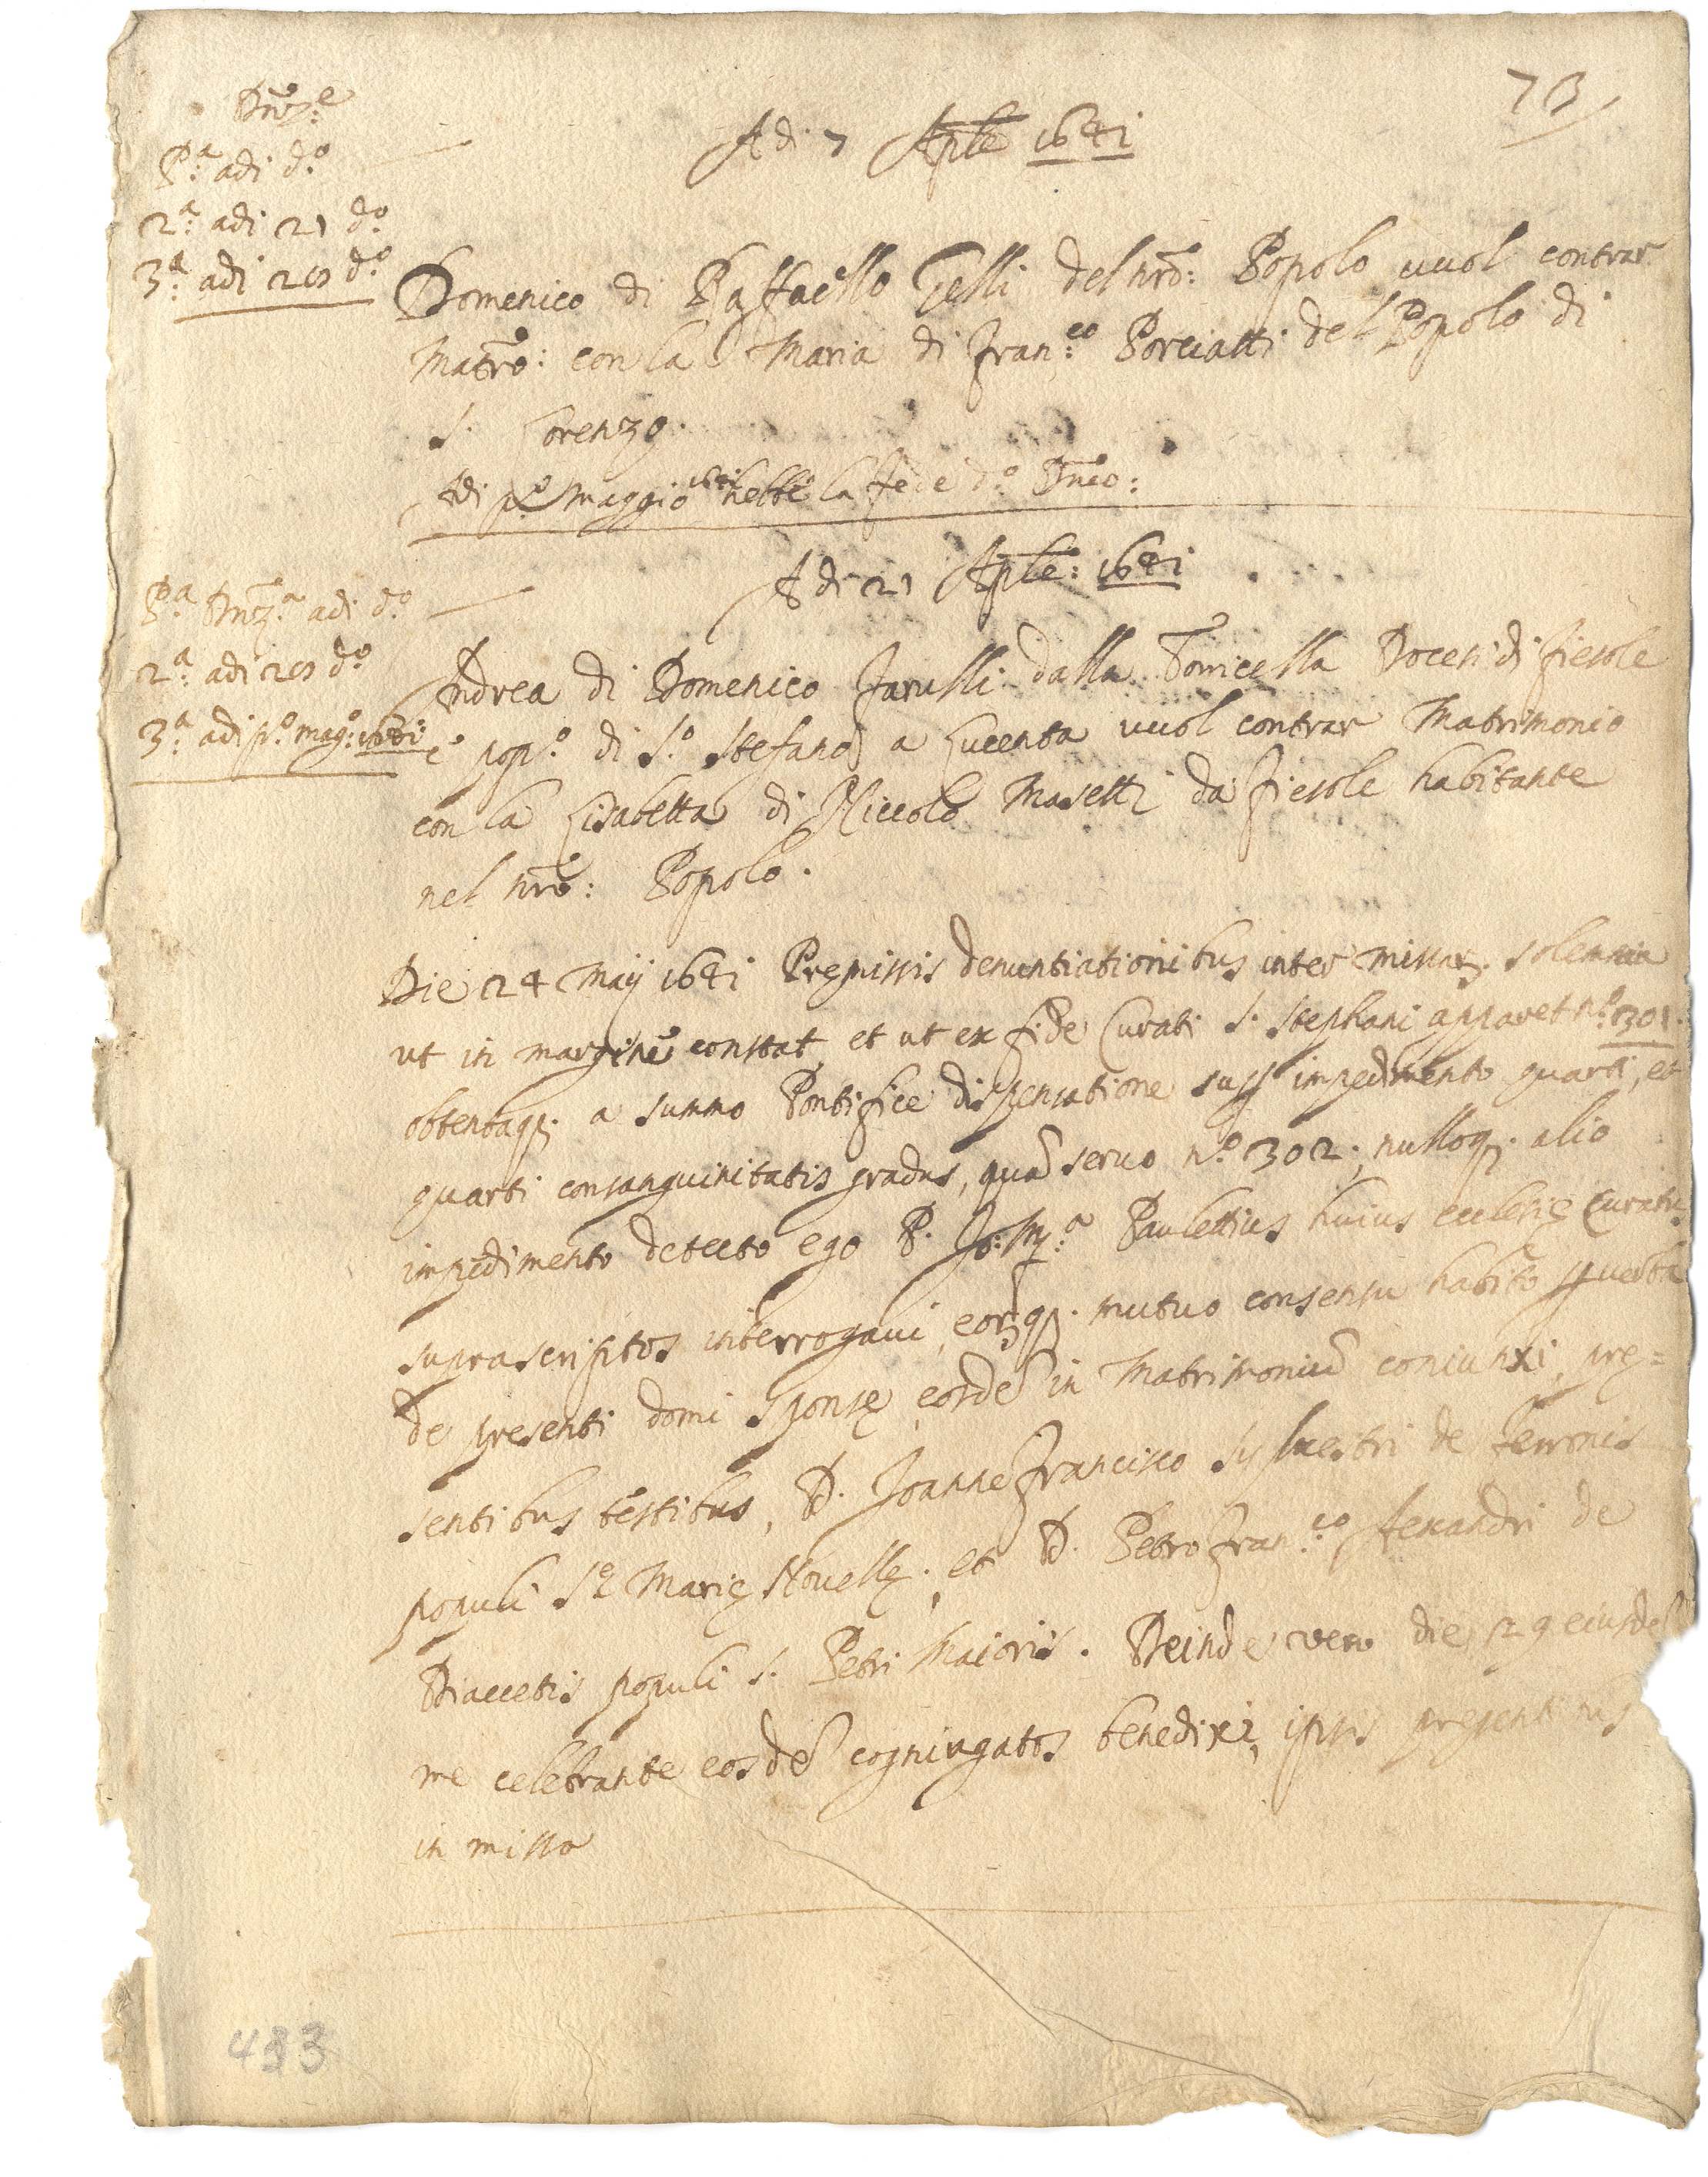 73
Dnz:e
P:a adi d:o
2:a adi 21 d:o
3:a adi 28 d:o
Adi 7 Aple 1641
Domenico di Raffaello Gelli del nro: Popolo vuol contrar
Matro: con la Maria di Fran:co Porciatti del Popolo di
S. Lorenzo.
Adi p:o Maggio 1641 hebbe la fede d:o Dnco:
Adi 21 Aple: 1641
P:a Dnz:a adi d:o
2:a adi 28 d:o
3:a adi p:o mag:o 1641
Andrea di Domenico Jarulli dalla Torricella Diocesi di fiesole
e pop:o di S:o Stefano a Lucenta vuol contrar Matrimonio
con la Lisabetta di Niccolò Masetti da fiesole habitante
nel nro: Popolo.
Die 24 Maij 1641 Premissis denuntiationibus inter missarz. solemnia
ut in margine constat, et ut ex fide Curati S. Stephani apparet n:o 301.
obtentaq; a summo Pontifice dispensatione impedimento quarti, et
quarti consanguinitatis gradus, qua servo n:o 302; nulloq; alio
impedimento detecto ego P. Jo: M:a Paulettius huius ecclesie Curatus
suprascriptos interrogavi, eorzq; mutuo consensu habito p verba
de presenti domi sponse, eosde in Matrimoniu coniunxi, pre=
sentibus testibus, D. Joanne Francisco Sylvestri de ferronis
populi S:e Marie Novelle; et D. Petro Fran:co Alexandri de
Diaccetis populi S. Petri Maioris. Deinde vero die 29 eiusde
me celebrante eosde cogniugatos benedixi, ipsis presentibus
in missa
433